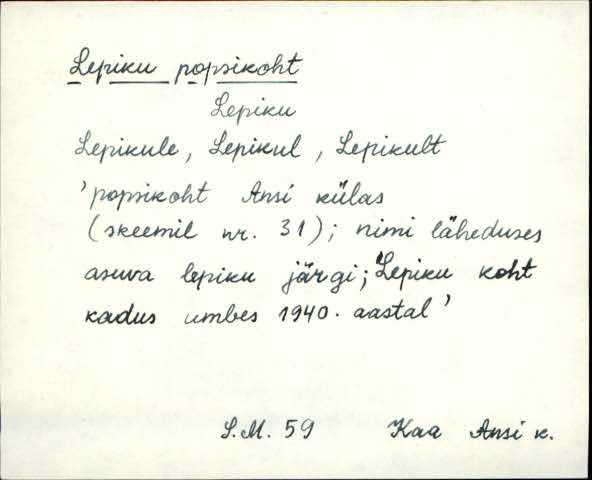 Lepiku popsikoht
Lepiku
Lepikule, Lepikul, Lepikult
'popsikoht Ansi külas
(skeemil nr. 31); nimi läheduses
asuva lepiku järgi; Lepiku koht
kadus umbes 1940. aastal'
S.M. 59 Kaa Ansi k.